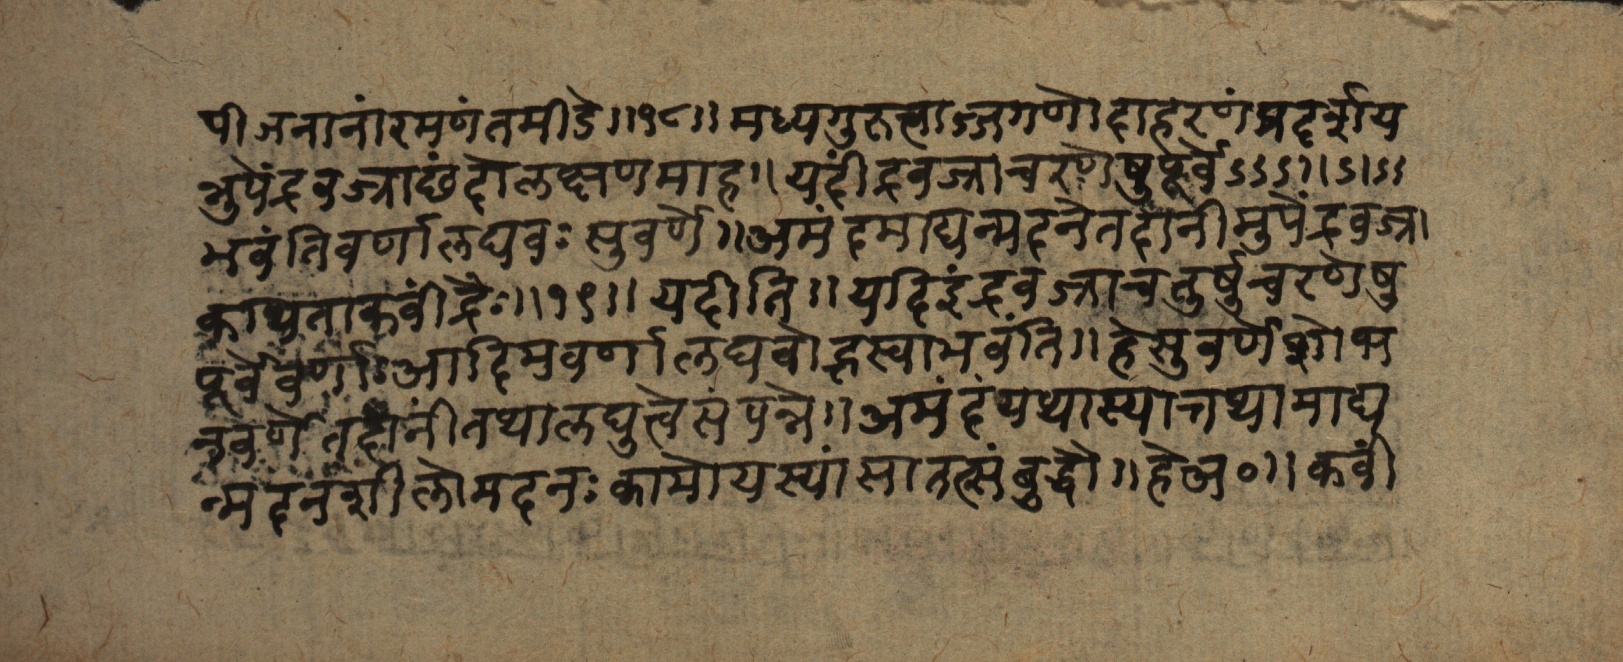 पीजनानांरमणंतमीडे॥१८॥मध्यगुरुत्वाज्जगणोदाहरणंप्रदर्शय
न्नुपेंद्रवज्राछंदोलक्षणमाह॥यदींद्रवज्राचरणेषुपूर्वेऽऽऽ।।ऽ।ऽऽ
भवंतिवर्णालघवःसुवर्णे॥अमंदमाद्यन्मदनेतदानीमुपेंद्रवज्रा
कथिताकवींद्रैः॥१९॥यदीति॥यदिइंद्रवज्राचतुर्षुचरणेषु
पूर्वेवर्णाःआदिमवर्णालघवोह्रस्वाभवंति॥हेसुवर्णेशोभ
नवर्णेतदानींतथालघुत्वेसंपन्ने॥अमंदंयथास्यात्तथामाद्य
न्मदनशीलोमदनःकामोयस्यांसातत्संबुद्धौ॥हेअ०॥कवीं